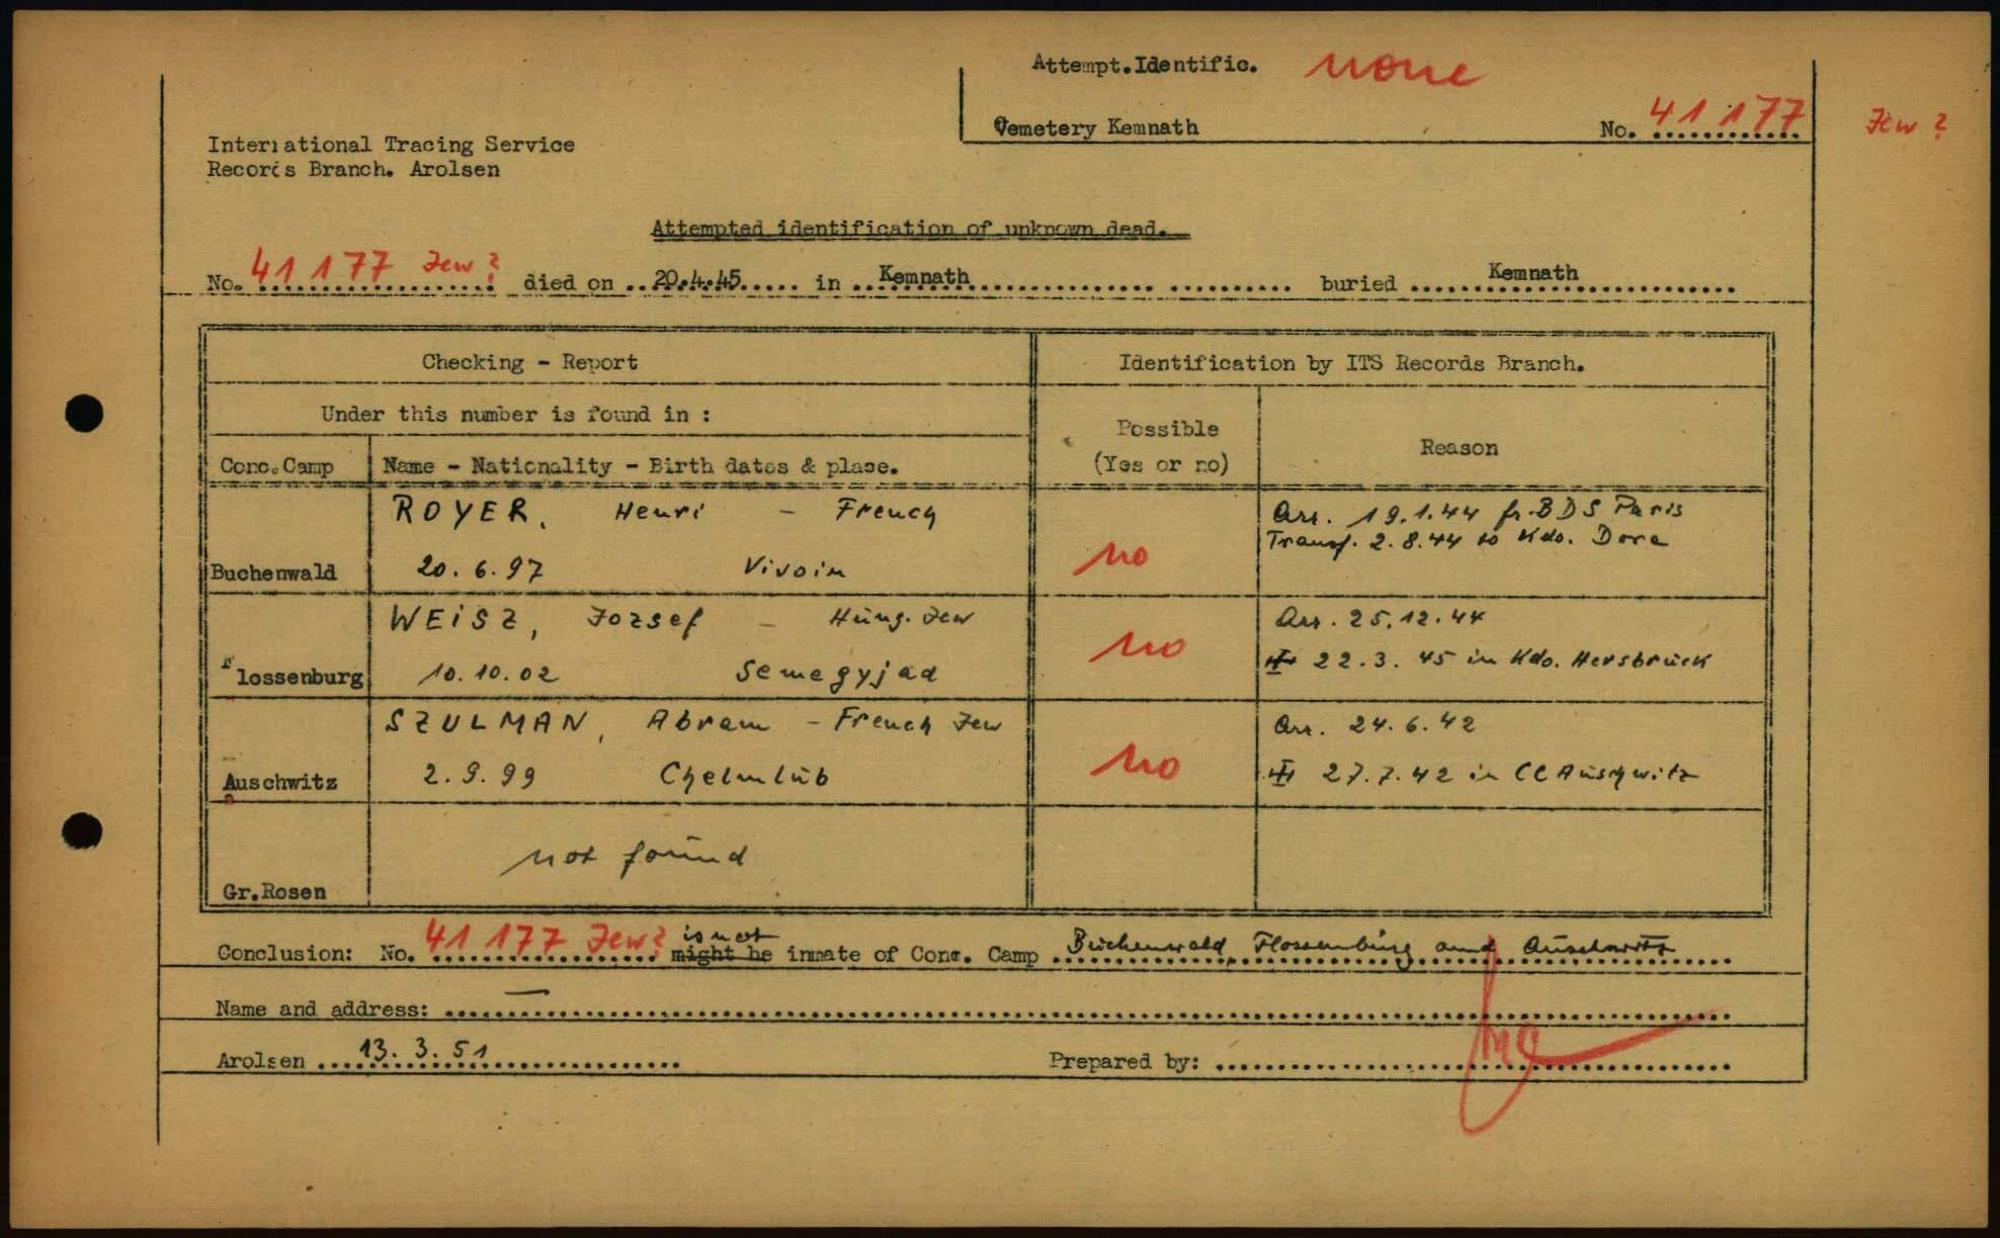 Attempt.Identific. none
Cemetery Kemnath No. 41 177 Jew?
International Tracing Service
Records Branch. Arolsen
Attempted identification of unknown dead.
No. 41 177 Jew? died on 20.4.45 in Kemnath buried Kemnath
Checking - Report
Identification by ITS Records Branch.
Under this number is found in :
Possible
(Yes or no)
Reason
Conc.Camp
Name - Nationality - Birth dates & place.
Buchenwald
ROYER, Henri - French
20. 6. 97 Vivoin
no
Arr. 19.1.44 fr. BDS Paris
Transf. 2.8.44 to Kdo. Dora
Flossenburg
WEISZ, Jozsef - Hung. Jew
10.10.02 Semegyjad
no
Arr. 25.12.44
22.3.45 in Kdo. Hersbruck
Auschwitz
SZULMAN, Abram - French Jew
2.9.99 Chelmlub
no
Arr. 24.6.42
27.7.42 in CC Auschwitz
Gr.Rosen
not found
Conclusion: No. 41 177 Jew? is not might be inmate of Conc. Camp Buchenwald, Flossenbürg and Auschwitz
Name and address: —
Arolsen 13. 3. 51
Prepared by: